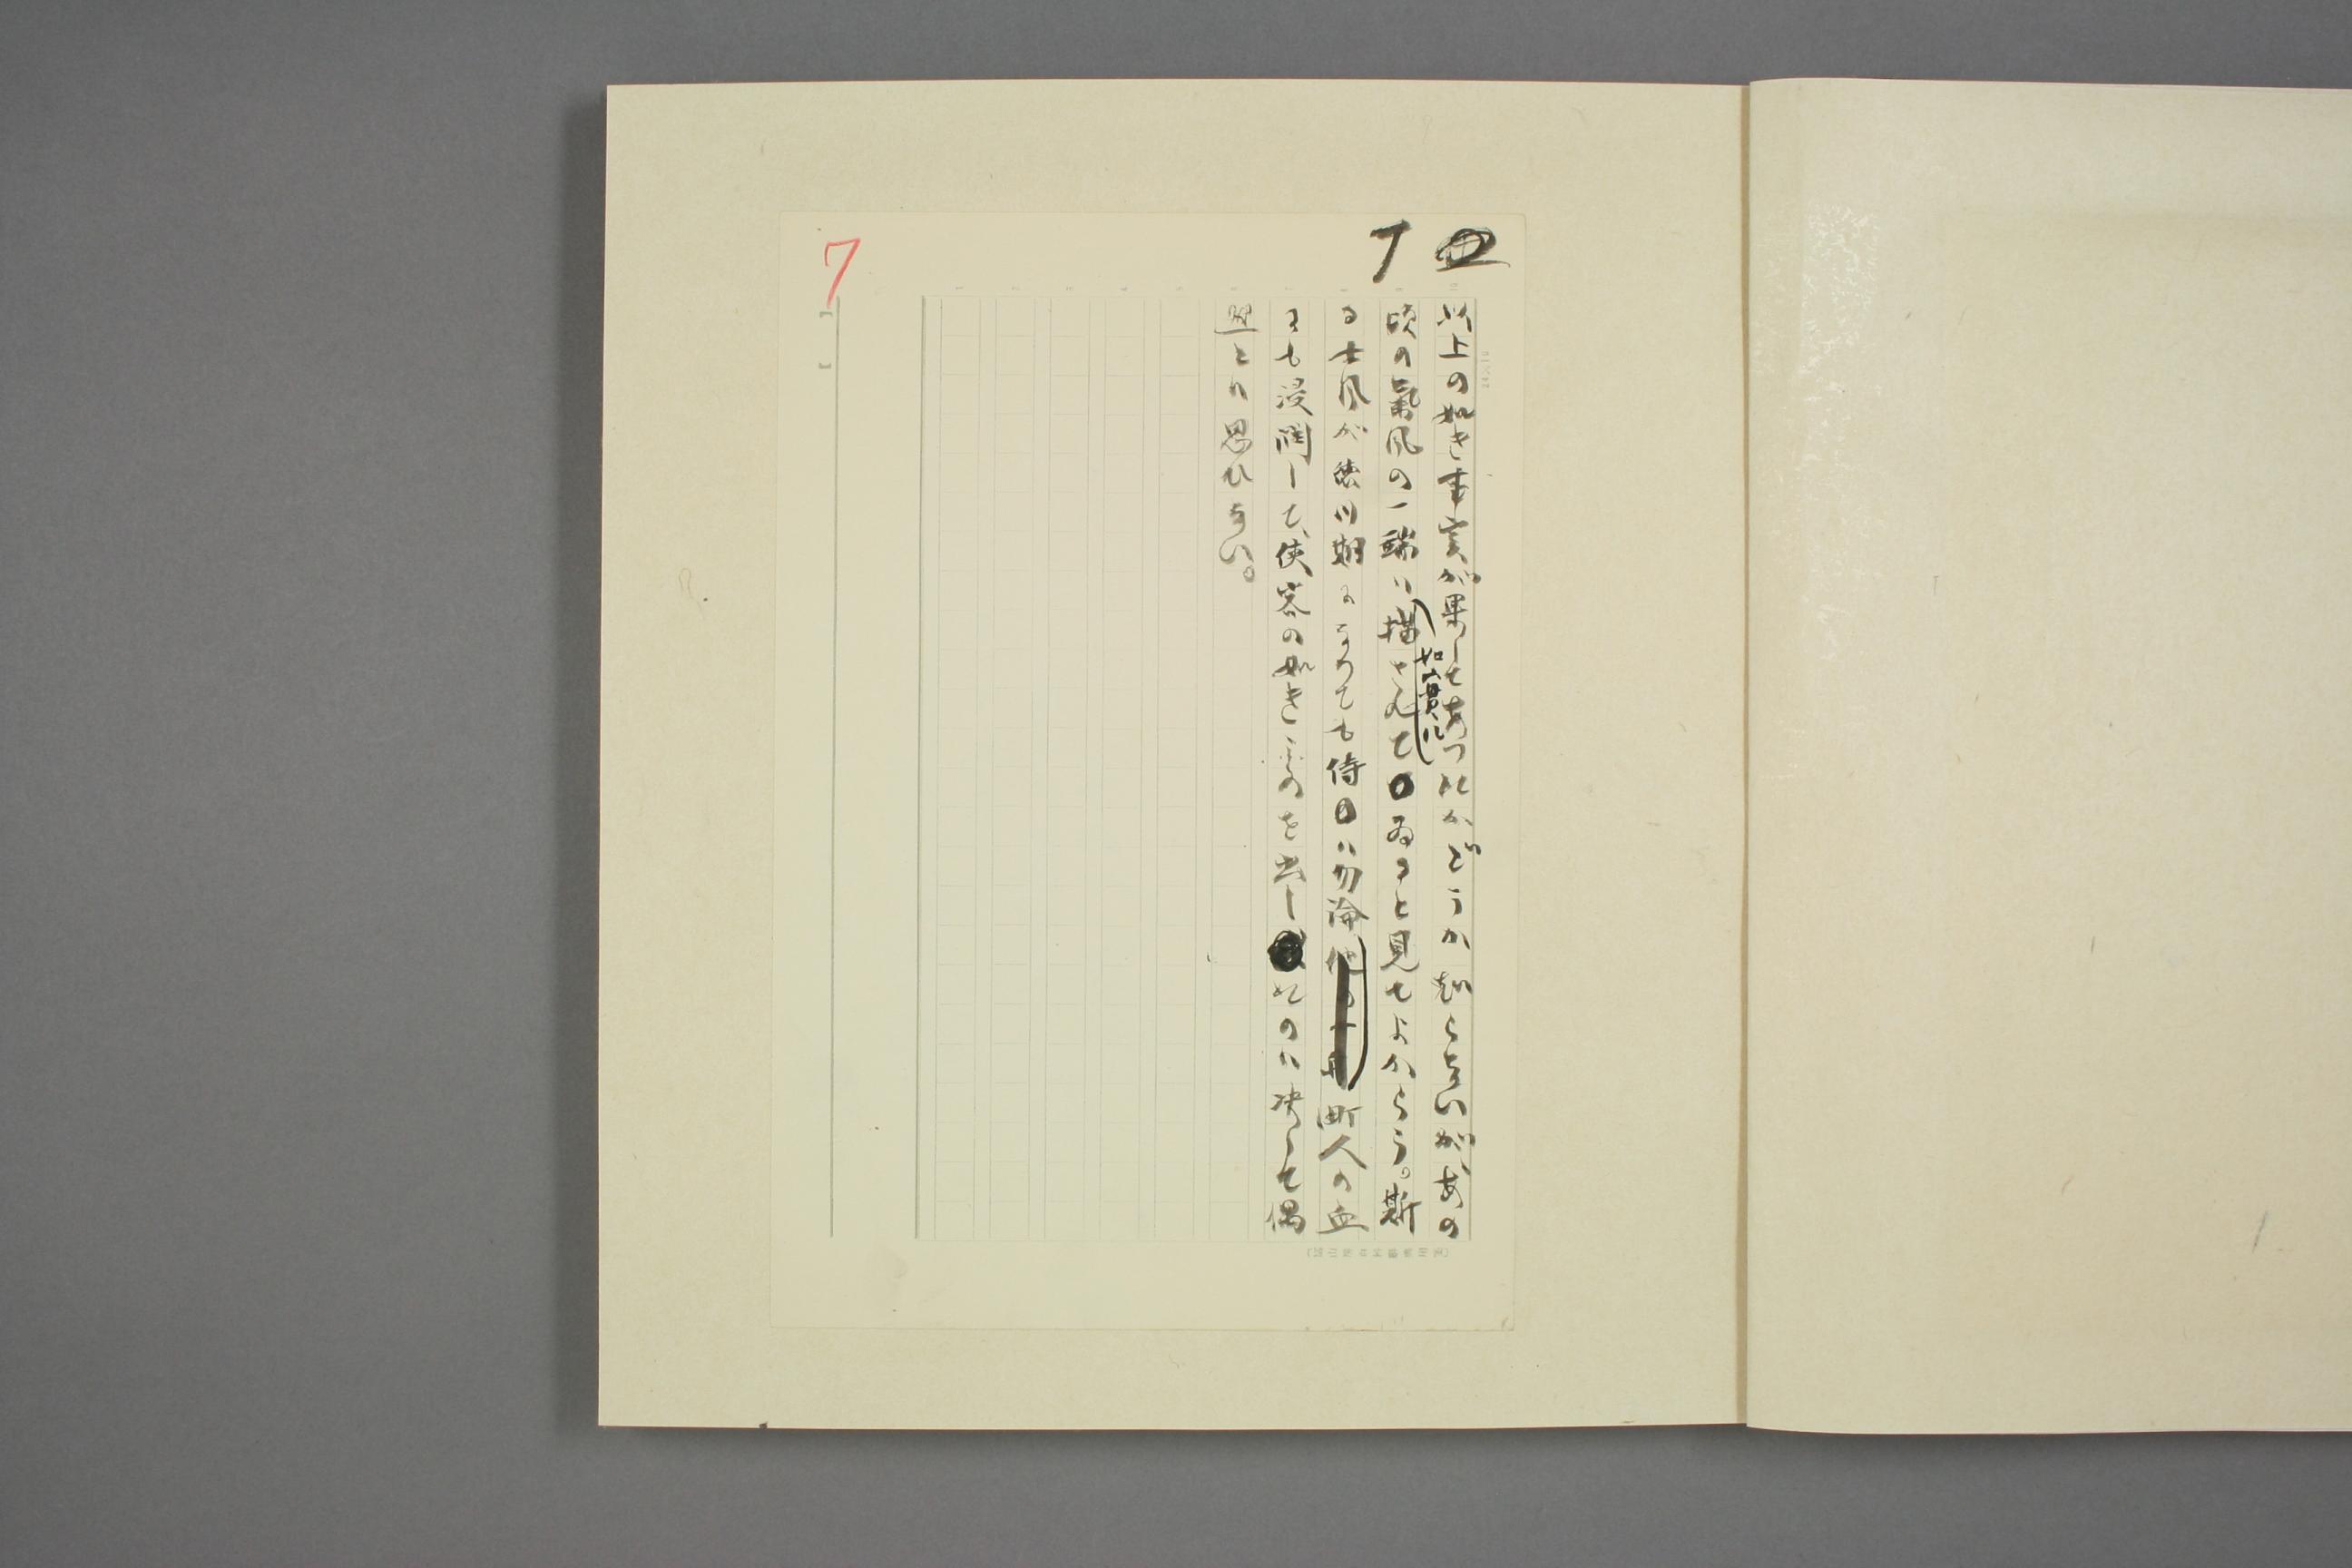 7
以上の如き事実が果して有つたかどうか知らないが、あの
頃の気風の一端は如実に描されてゐると見てよからう。斯
る士風が徳川期になつても侍は勿論町人の血
にも浸潤して、侠客の如きものを出したのは決して偶
然とは思ひない。
7
24×10